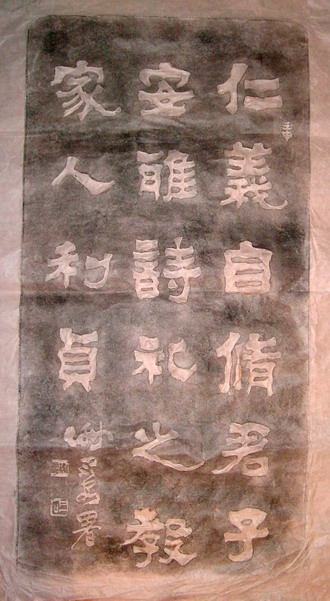 仁義自脩君子
安雅詩礼之教
家人利貞